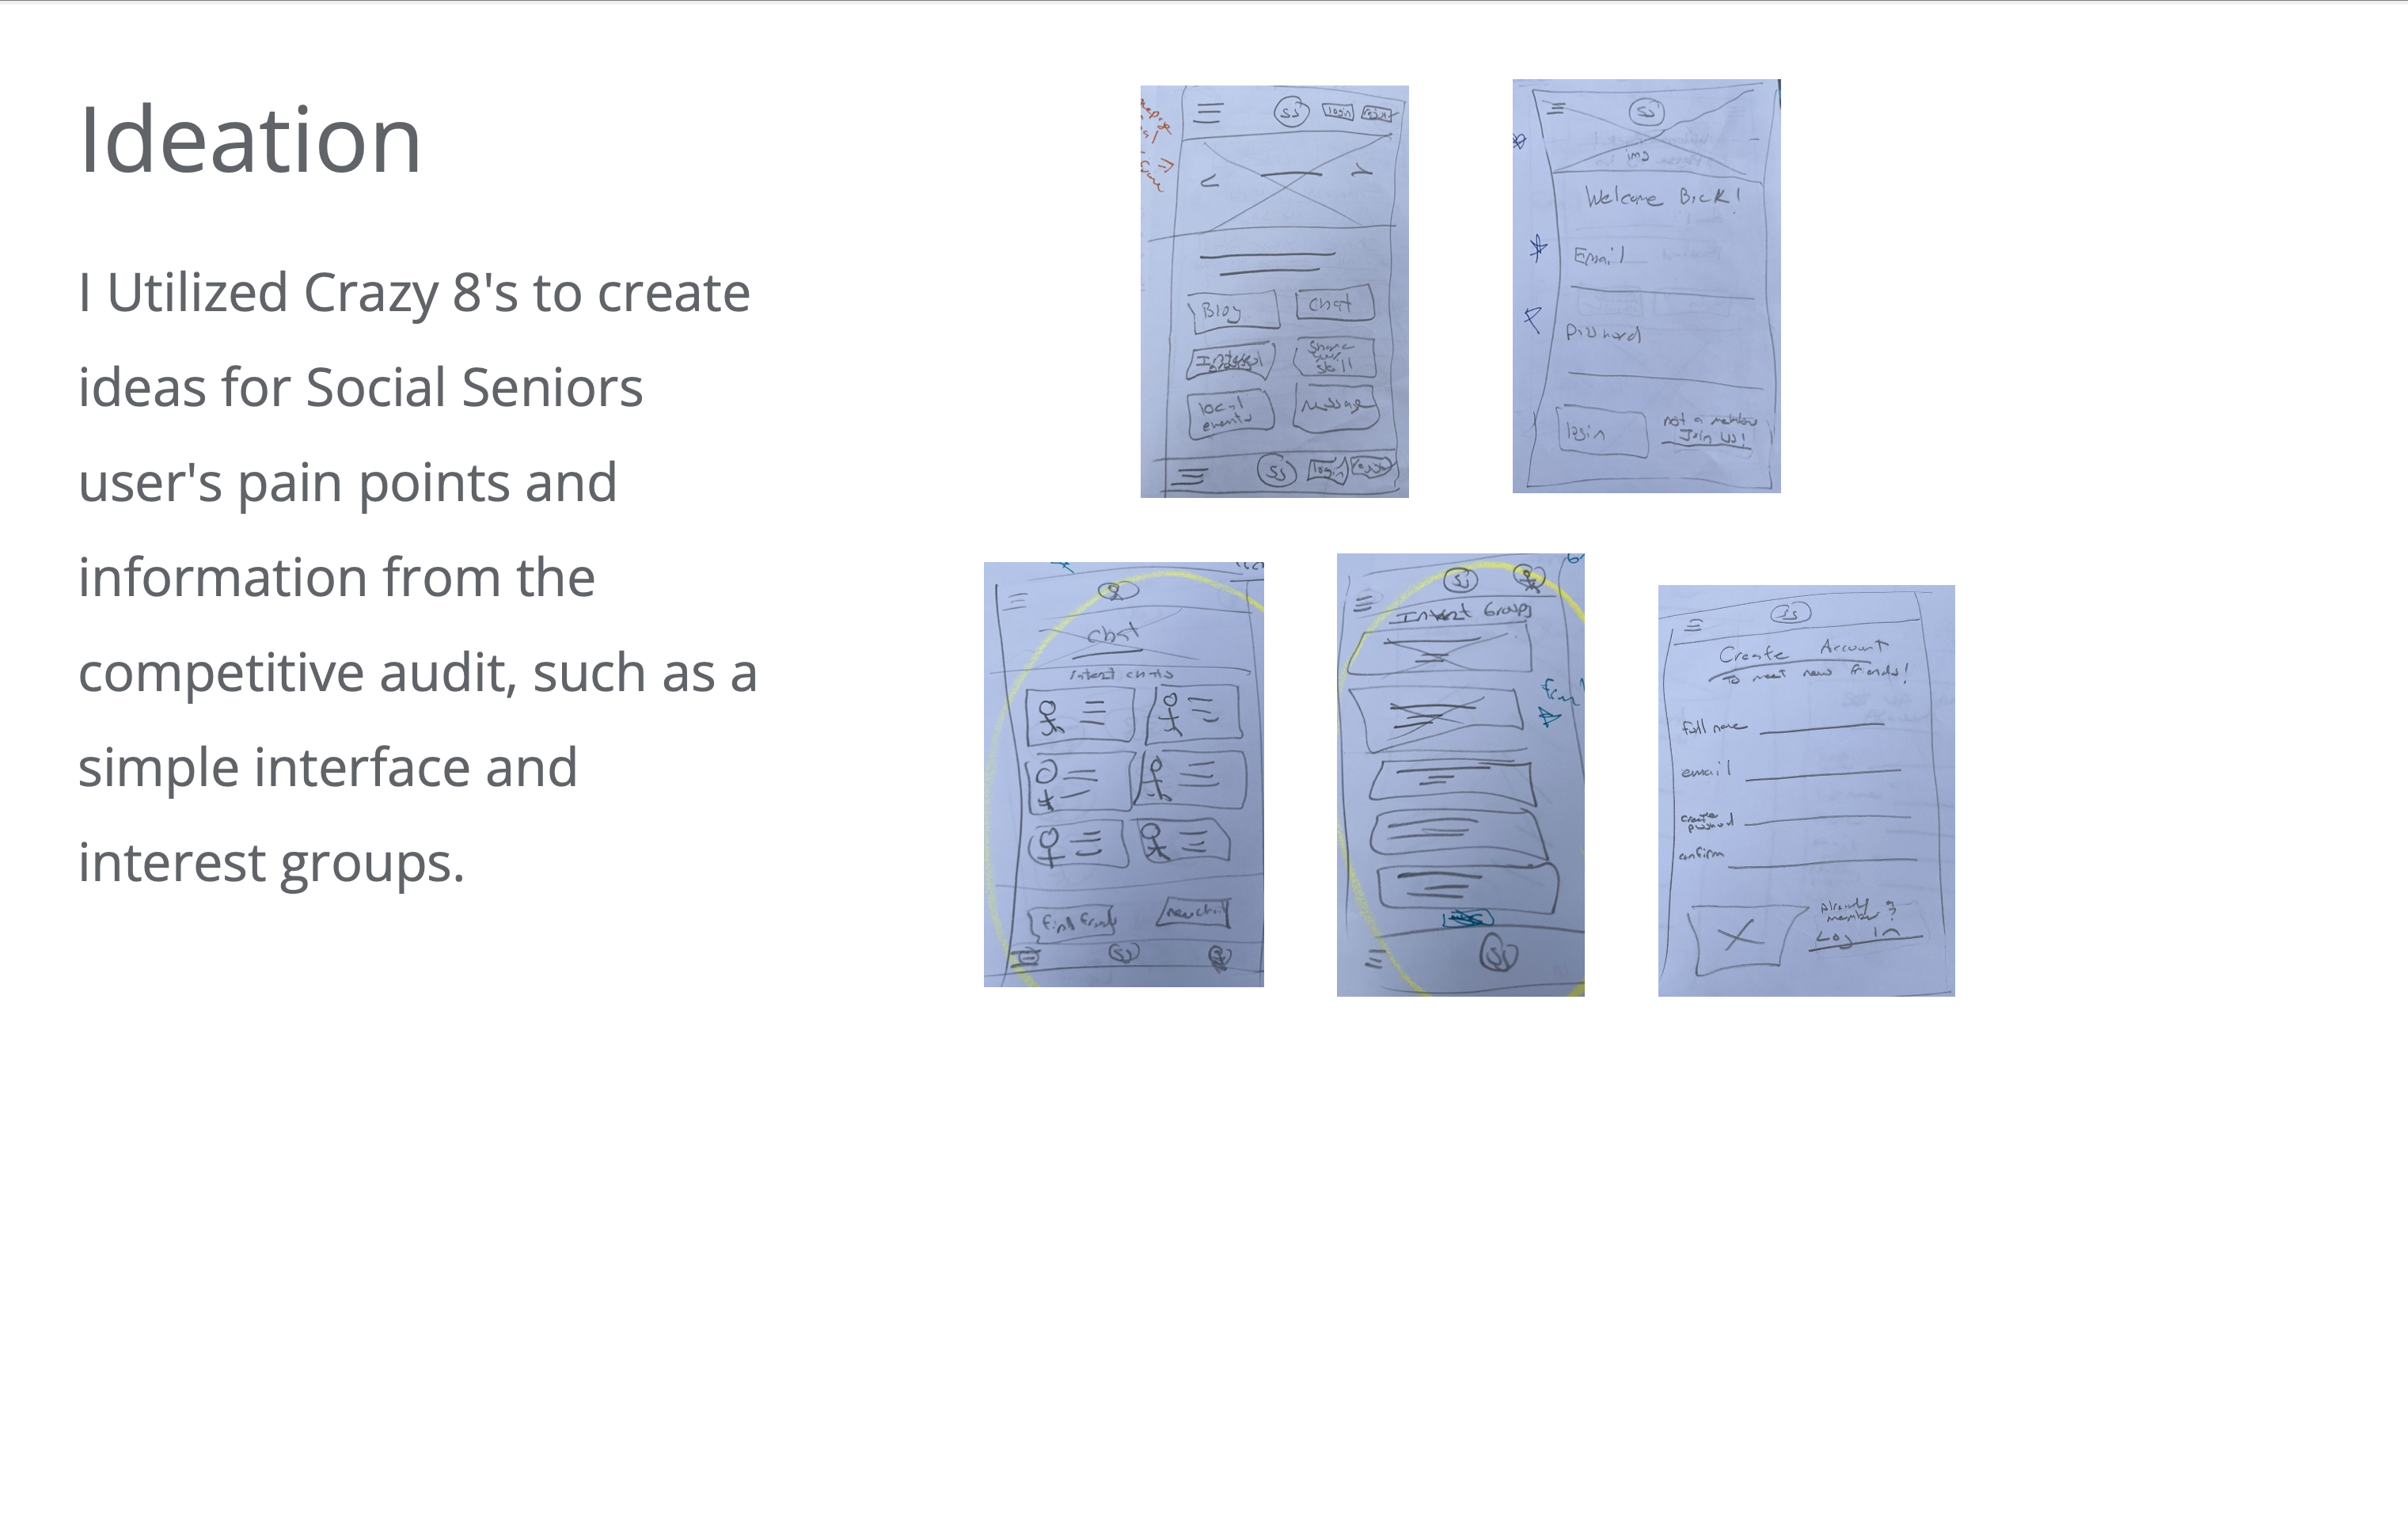 Ideation
I Utilized Crazy 8's to create
ideas for Social Seniors
user's pain points and
information from the
competitive audit, such as a
simple interface and
interest groups.
SS login
Blog chat
local events message
SS login
SS
img
Welcome Back!
Email
password
login
not a member
Join us!
chat
Interest chats
find friends new chat
SS
SS
Interest Groups
SS
SS
Create Account
To meet new friends!
full name
email
create
password
confirm
Already a
member?
Log In